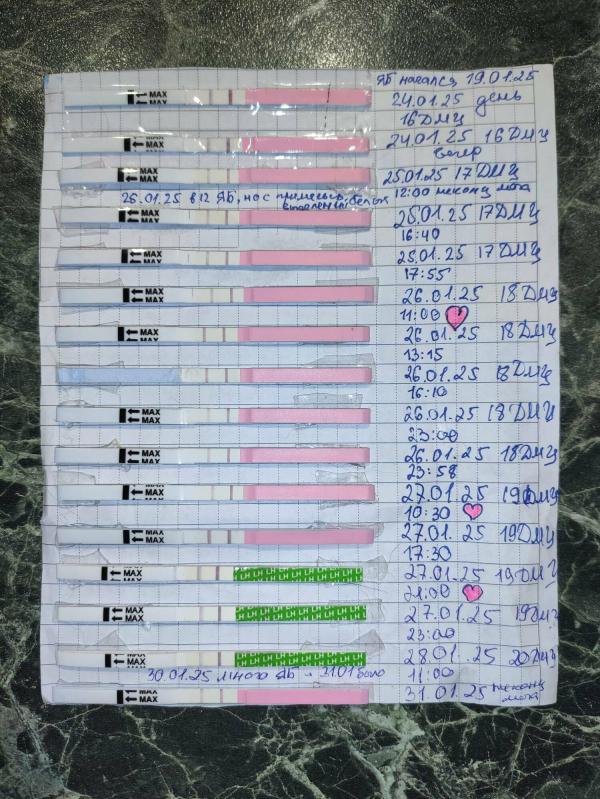 ЯБ начался 19.01.25
MAX
MAX
24.01.25 день
16 ДМЦ
MAX
MAX
24.01.25 16 ДМЦ
вечер
MAX
MAX
25.01.25 17 ДМЦ
12:00
26.01.25 в 12 ЯБ, но с примесью
MAX
MAX
25.01.25 17 ДМЦ
16:40
MAX
MAX
25.01.25 17 ДМЦ
17:55
MAX
MAX
26.01.25 18 ДМЦ
11:00
MAX
MAX
26.01.25 18 ДМЦ
13:15
26.01.25 18 ДМЦ
16:10
MAX
MAX
26.01.25 18 ДМЦ
23:00
MAX
MAX
26.01.25 18 ДМЦ
23:58
MAX
MAX
27.01.25 19 ДМЦ
10:30
MAX
MAX
27.01.25 19 ДМЦ
17:30
MAX
MAX
LH LH LH LH LH LH LH LH
27.01.25 19 ДМЦ
21:00
MAX
MAX
LH LH LH LH LH LH LH LH
27.01.25 19 ДМЦ
23:00
MAX
MAX
LH LH LH LH LH LH LH LH
28.01.25 20 ДМЦ
11:00
30.01.25 много ЯБ
MAX
MAX
31.01.25